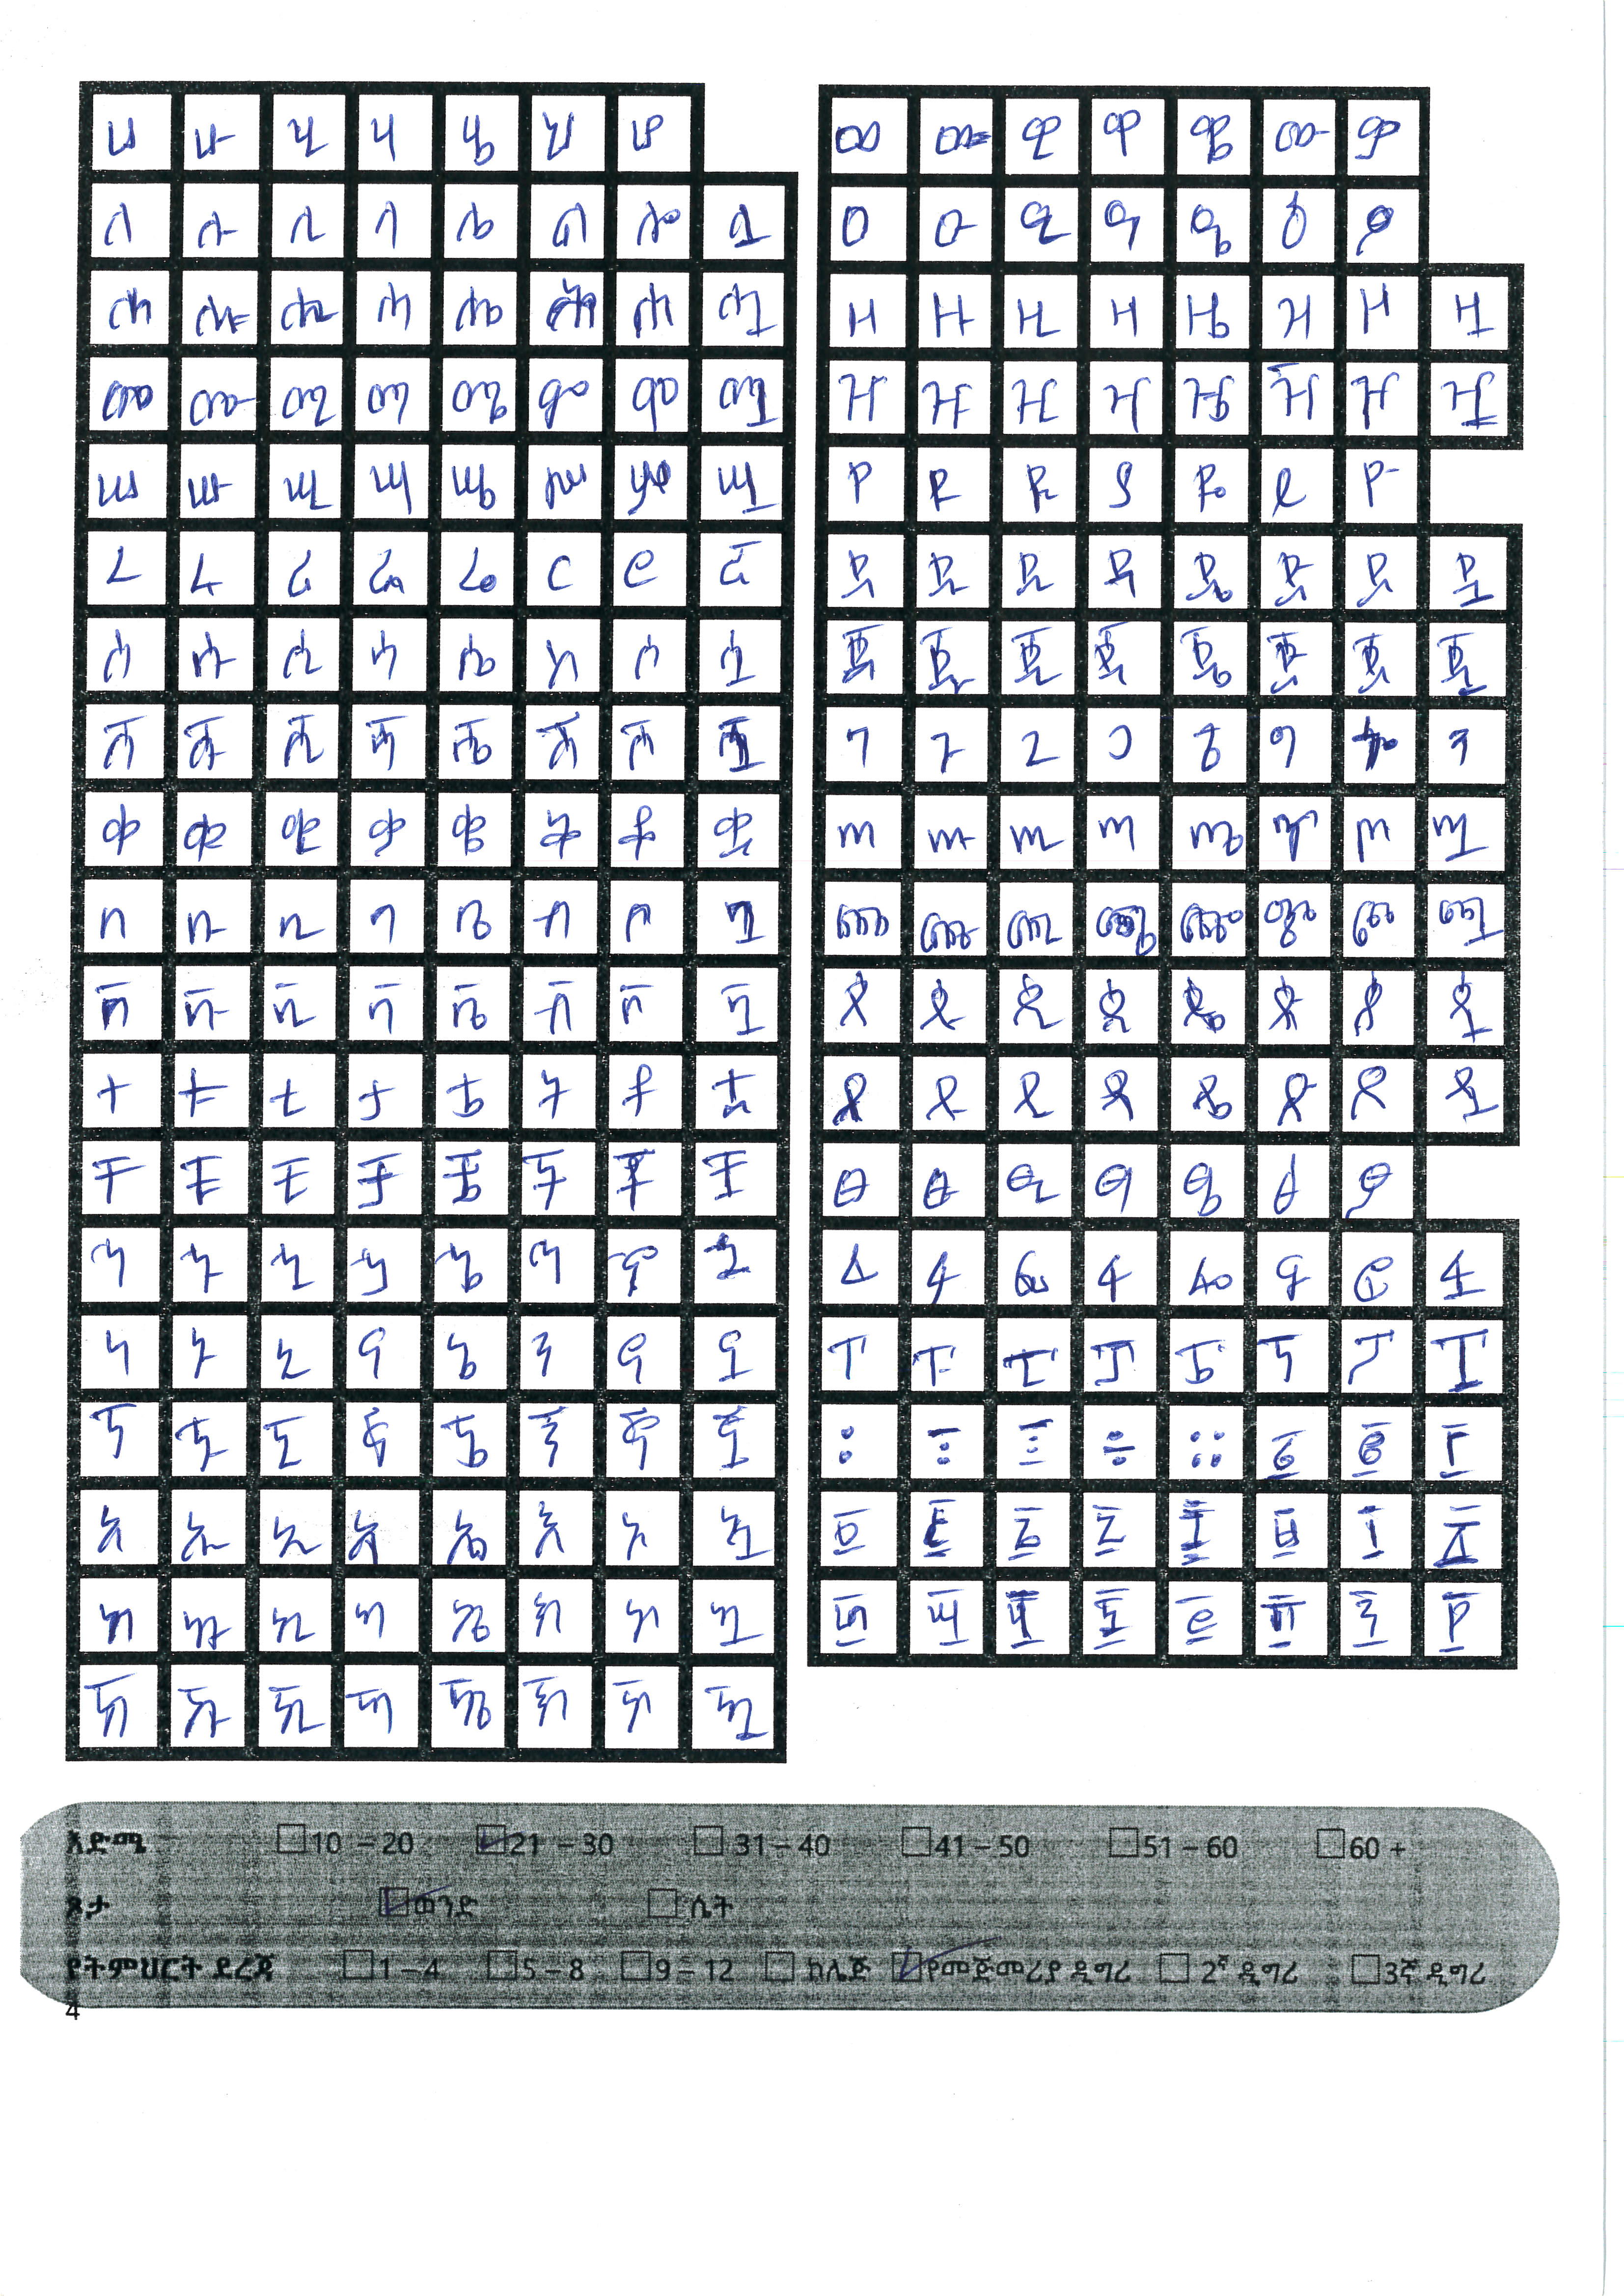 ሀ ሁ ሂ ሃ ሄ ህ ሆ
ለ ሉ ሊ ላ ሌ ል ሎ ሏ
ሐ ሑ ሒ ሓ ሔ ሕ ሖ ሗ
መ ሙ ሚ ማ ሜ ም ሞ ሟ
ሠ ሡ ሢ ሣ ሤ ሥ ሦ ሧ
ረ ሩ ሪ ራ ሬ ር ሮ ሯ
ሰ ሱ ሲ ሳ ሴ ስ ሶ ሷ
ሸ ሹ ሺ ሻ ሼ ሽ ሾ ሿ
ቀ ቁ ቂ ቃ ቄ ቅ ቆ ቋ
በ ቡ ቢ ባ ቤ ብ ቦ ቧ
ቨ ቩ ቪ ቫ ቬ ቭ ቮ ቯ
ተ ቱ ቲ ታ ቴ ት ቶ ቷ
ቸ ቹ ቺ ቻ ቼ ች ቾ ቿ
ኀ ኁ ኂ ኃ ኄ ኅ ኆ ኋ
ነ ኑ ኒ ና ኔ ን ኖ ኗ
ኘ ኙ ኚ ኛ ኜ ኝ ኞ ኟ
አ ኡ ኢ ኣ ኤ እ ኦ ኧ
ከ ኩ ኪ ካ ኬ ክ ኮ ኳ
ኸ ኹ ኺ ኻ ኼ ኽ ኾ ዃ
ወ ዉ ዊ ዋ ዌ ው ዎ
ዐ ዑ ዒ ዓ ዔ ዕ ዖ
ዘ ዙ ዚ ዛ ዜ ዝ ዞ ዟ
ዠ ዡ ዢ ዣ ዤ ዥ ዦ ዧ
የ ዩ ዪ ያ ዬ ይ ዮ
ደ ዱ ዲ ዳ ዴ ድ ዶ ዷ
ጀ ጁ ጂ ጃ ጄ ጅ ጆ ጇ
ገ ጉ ጊ ጋ ጌ ግ ጎ ጓ
ጠ ጡ ጢ ጣ ጤ ጥ ጦ ጧ
ጨ ጩ ጪ ጫ ጬ ጭ ጮ ጯ
ጰ ጱ ጲ ጳ ጴ ጵ ጶ ጷ
ጸ ጹ ጺ ጻ ጼ ጽ ጾ ጿ
ፀ ፁ ፂ ፃ ፄ ፅ ፆ
ፈ ፉ ፊ ፋ ፌ ፍ ፎ ፏ
ፐ ፑ ፒ ፓ ፔ ፕ ፖ ፗ
፡ ። ፩ ፪ ፫
፬ ፭ ፮ ፯ ፰ ፱ ፲ ፳
፴ ፵ ፶ ፷ ፸ ፹ ፺ ፻
እድሜ 10 – 20 21 – 30 31 – 40 41 – 50 51 – 60 60 +
ጾታ ወንድ ሴት
የትምህርት ደረጃ 1 – 4 5 – 8 9 – 12 ኮሌጅ የመጀመሪያ ዲግሪ 2ኛ ዲግሪ 3ኛ ዲግሪ
4